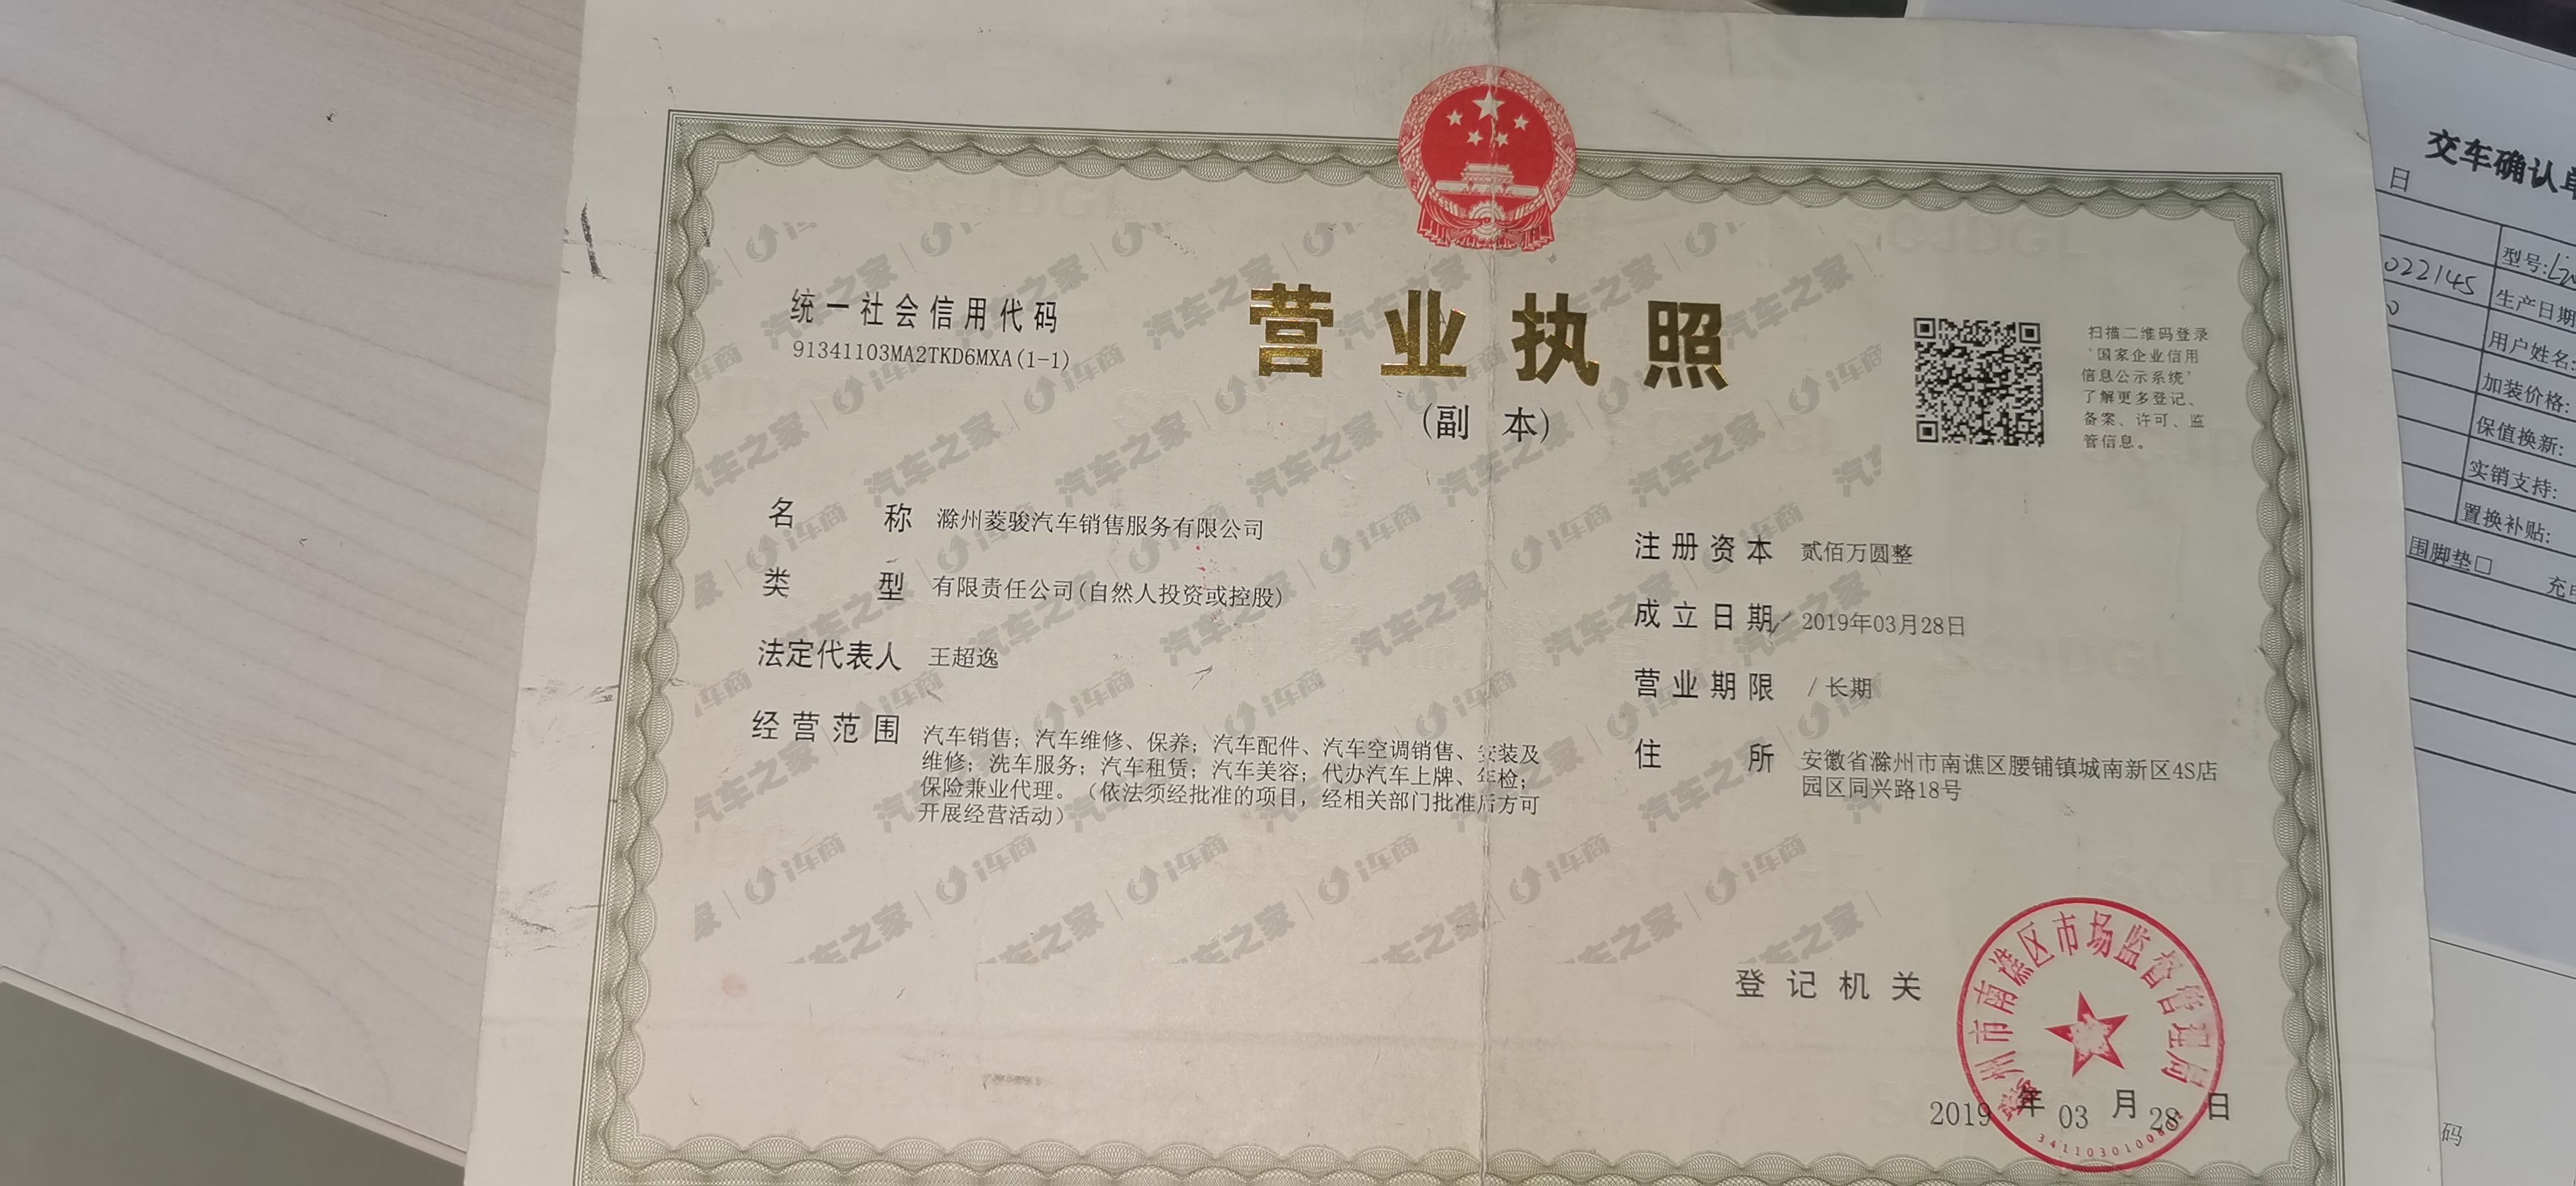 统一社会信用代码
91341103MA2TKD6MXA(1-1)
营业执照
(副 本)
扫描二维码登录
‘国家企业信用
信息公示系统’
了解更多登记、
备案、许可、监
管信息。
名 称 滁州菱骏汽车销售服务有限公司
类 型 有限责任公司(自然人投资或控股)
法定代表人 王超逸
经营范围 汽车销售；汽车维修、保养；汽车配件、汽车空调销售、安装及
维修；洗车服务；汽车租赁；汽车美容；代办汽车上牌、年检；
保险兼业代理。（依法须经批准的项目，经相关部门批准后方可
开展经营活动）
注册资本 贰佰万圆整
成立日期 2019年03月28日
营业期限 / 长期
住 所 安徽省滁州市南谯区腰铺镇城南新区4S店
园区同兴路18号
登记机关
滁州市南谯区市场监督管理局
2019 年 03 月 28 日
交车确认单
日
022145
型号:
生产日期
用户姓名:
加装价格:
保值换新:
实销支持:
置换补贴:
围脚垫□
充电
码
汽车之家 | i车商